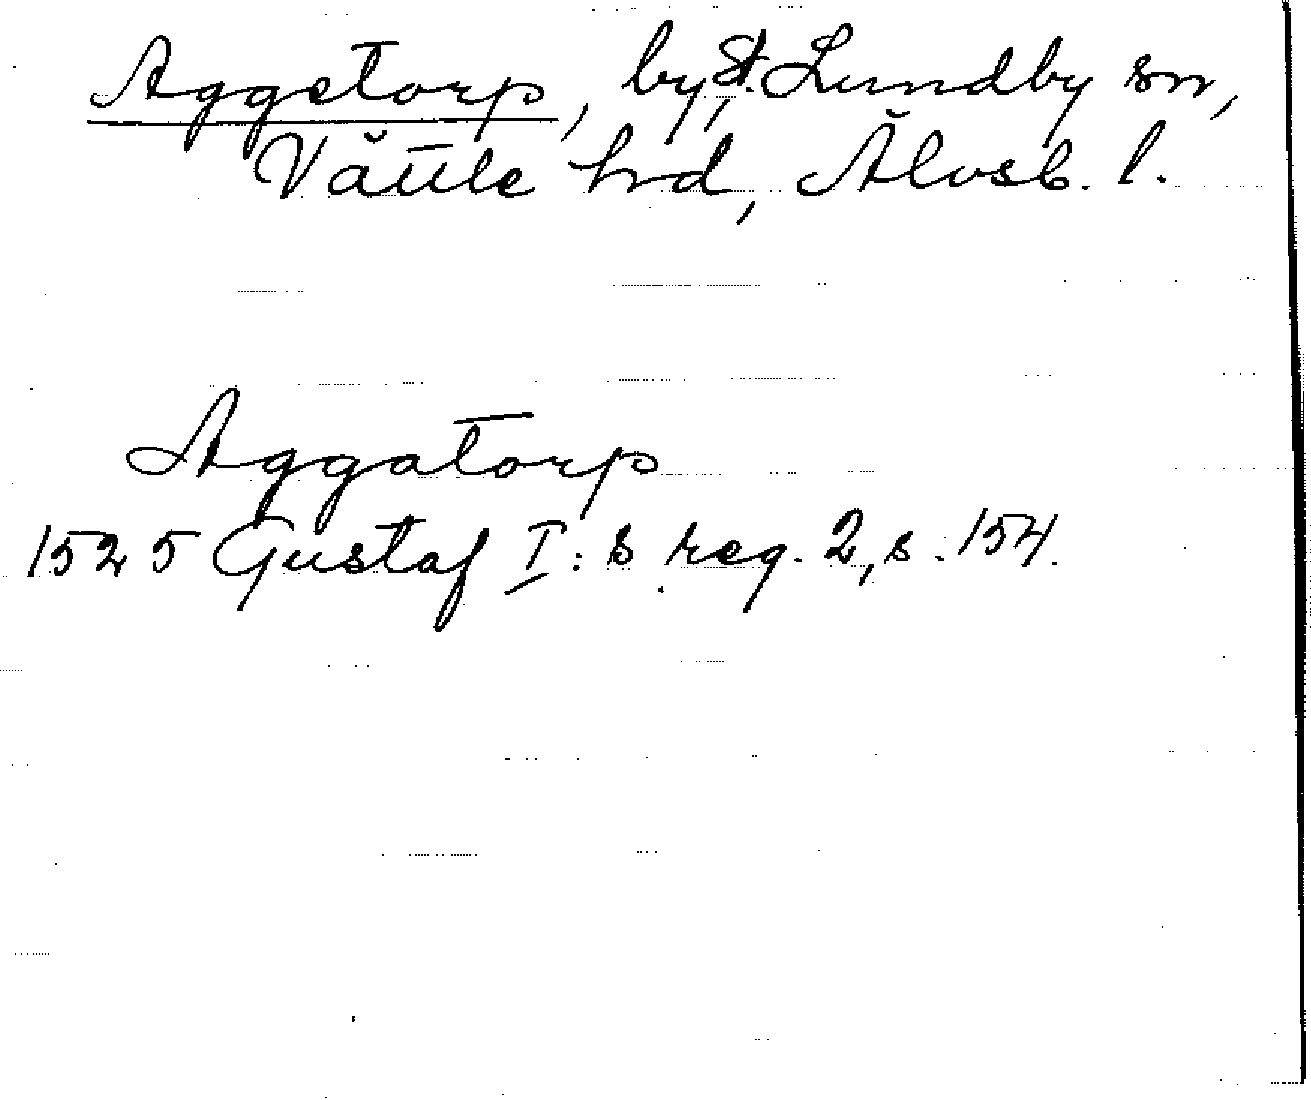 Aggetorp, by, St. Lundby sn,
Vättle hrd, Älvsb. l.
Aggatorp
1525 Gustaf I:s reg. 2, s. 154.